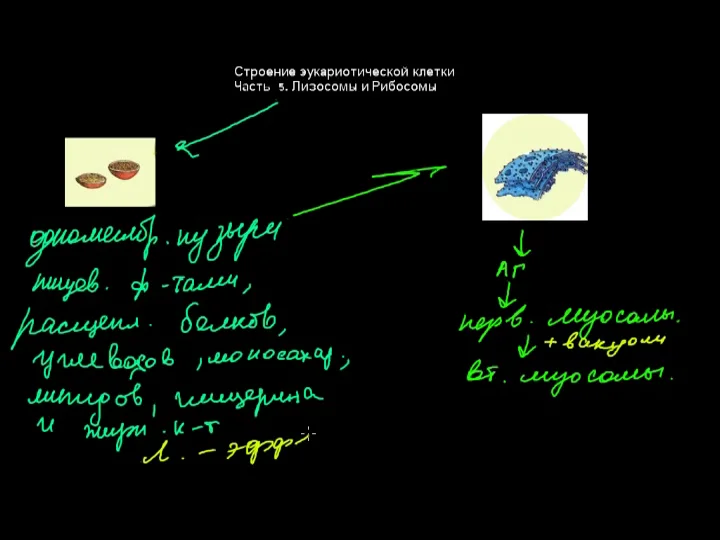 Строение эукариотической клетки
Часть 5. Лизосомы и Рибосомы
одномембр. пузыри
пищев. ф-тами,
расщепл. белков,
углеводов, моносахар.,
липидов, глицерина
и жирн. к-т
Л. - эфф
АГ
перв. лизосомы.
+ вакуоли
Вт. лизосомы.